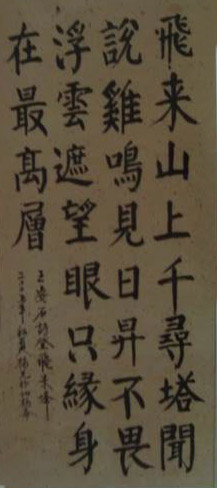 飛来山上千尋塔聞
說雞鳴見日昇不畏
浮雲遮望眼只緣身
在最高層
王安石詩登飛来峰